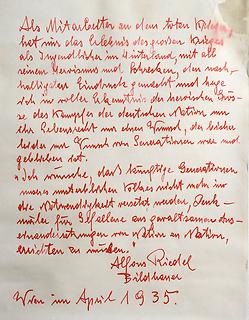 Als Mitarbeiter an dem toten Krieger
hat mir das Erlebnis des großen Krieges
als Jugendlicher im Hinterland, mit all
seinem Heroismus und Schrecken, den nach-
haltigsten Eindruck gemacht und hege
ich in voller Erkenntnis der heroischen Größe
des Kampfes der deutschen Nation um
ihr Lebensrecht nur einen Wunsch, der bisher
leider nur Wunsch von Generationen war und
geblieben ist.
"Ich wünsche, dass künftige Generationen
unseres unsterblichen Volkes nicht mehr in
die Notwendigkeit versetzt werden, Denk-
mäler für Gefallene aus gewaltsamen Aus-
einandersetzungen von Nation zu Nation,
errichten zu müssen."
Alfons Riedel
Bildhauer
Wien im April 1935.